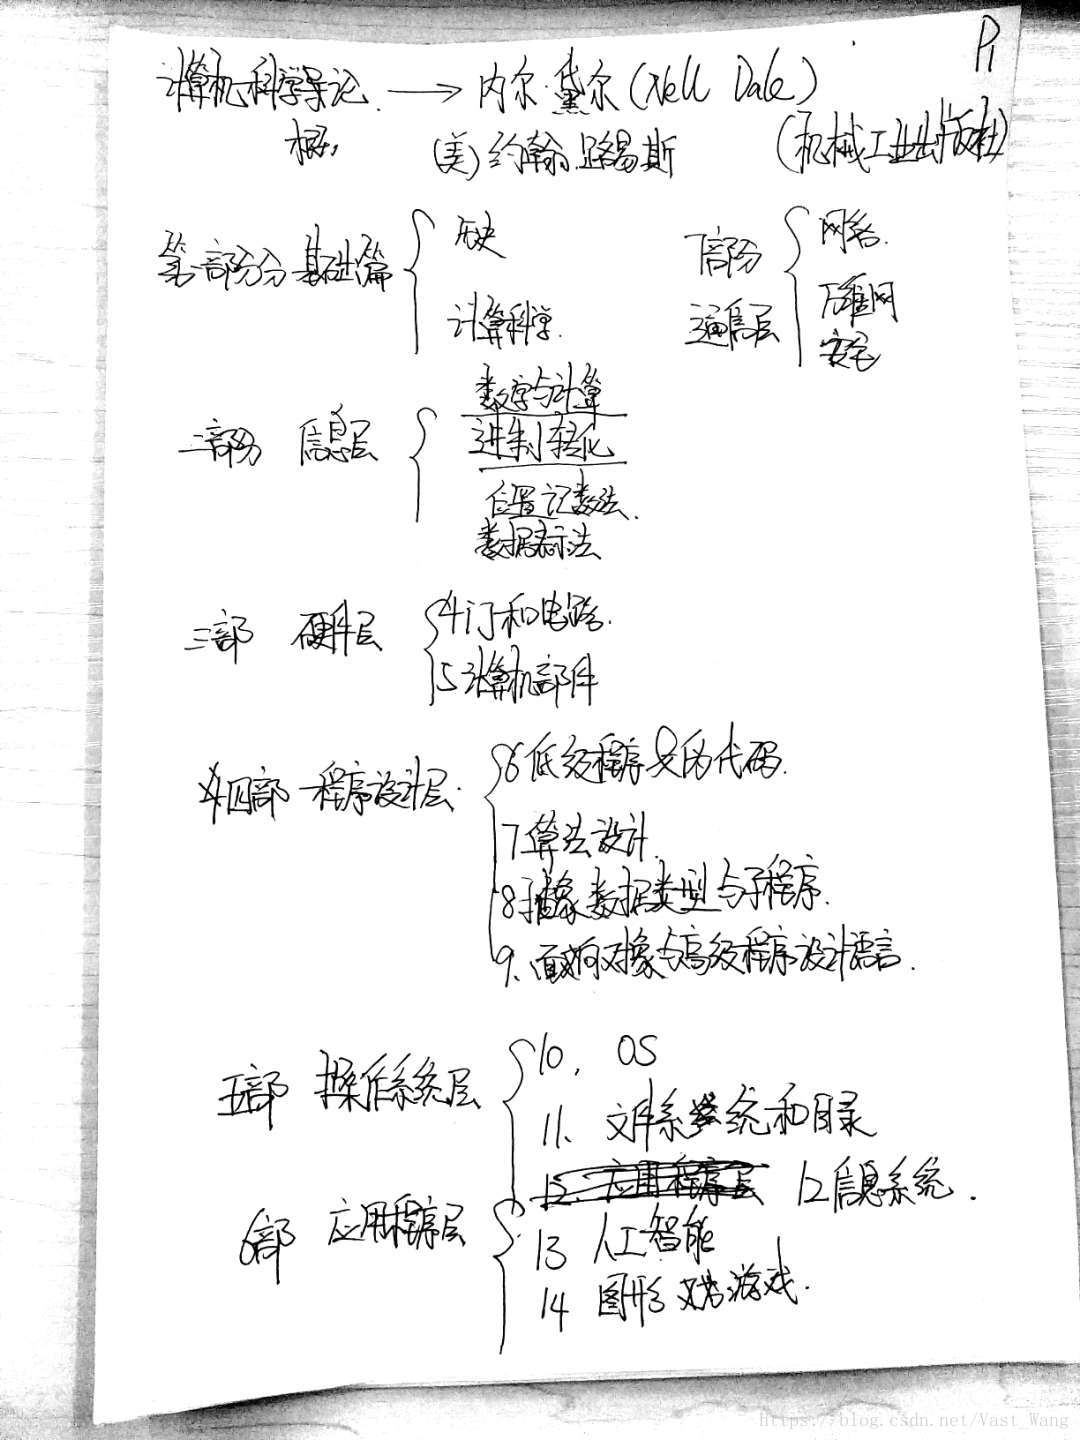 P1
计算机科学导论 → 内尔·黛尔(Nell Dale)
(美)约翰·路易斯 (机械工业出版社)
第一部分 基础篇
历史
计算科学.
7部分
通信层
网络.
万维网
安全
二部分 信息层
数字与计算
进制转化
位置记数法.
数据表示法
三部 硬件层
4门和电路.
5计算机部件
四部 程序设计层.
6低级程序及伪代码.
7算法设计.
8抽象数据类型与子程序.
9、面向对象与高级程序设计语言.
五部 操作系统层
10、OS
11、文件系统和目录
12信息系统.
6部 应用程序层
13 人工智能
14 图形 游戏.
https://blog.csdn.net/Vast_Wang